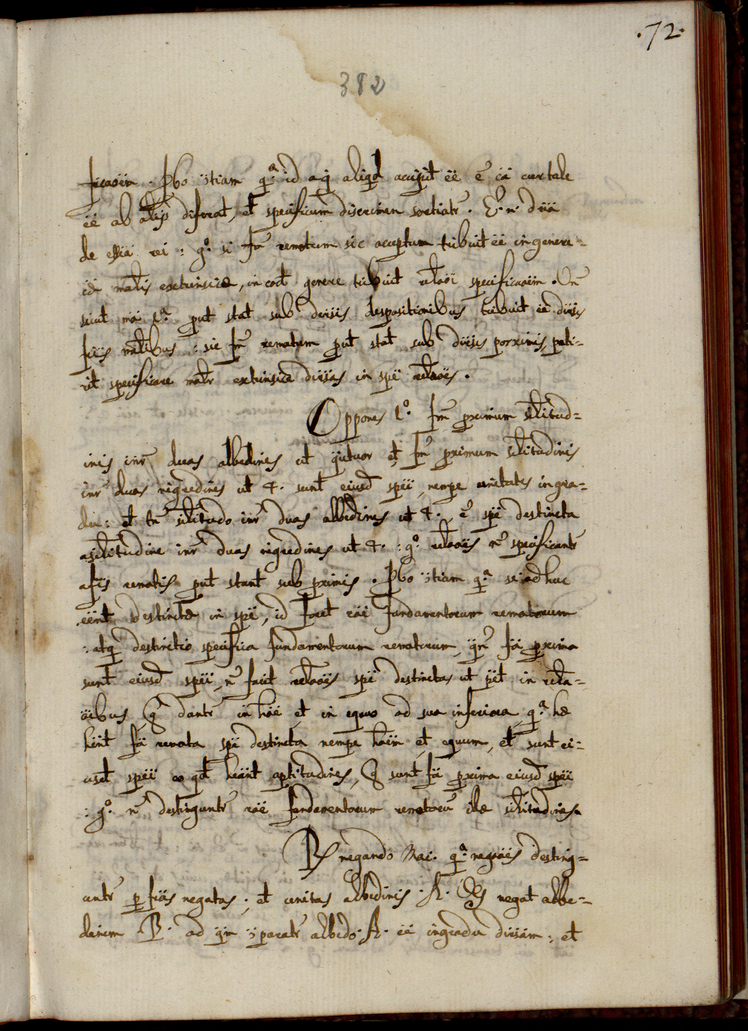 .72.
382
ficaõm. Pbo õtiam q.ª id a q̃ aliq̃d accipit ẽe ẽ iã cur tale
ẽe ab alijs diferat, et specificum discrimen sortiatr. E.ᵗ n. driã
de eẽtia rei : g.º si fm̃ remotum sic acceptum tribuit ẽe in genere
matris extrinsice, in eod genere tribuit relaõi specificaõm. Un
sicut ma 1.ª put stat sub diũsis despositionibus tribuit ẽe diũsis
formis matlibus : sic fm̃ remotum put stat sub diũsis porximis, poti-
rit specificare matr extrinsice diũsas in spẽ relaõis.
Oppones 1.º fm̃ proximum silitud=
inis intr duas albedines ut quatuor et fm̃ proximum silitudinis
intr duas nigredines ut 4. sunt eiusd spẽi, nempe unitates in gra-
du : et tñ silitudo intr duas albedines ut 4. ẽ spẽ destincta
a silitudine intr duas nigredines ut 4. : g.º relaões nõ specificantr
a fis remotis put stant sub proximis. Pbo õtiam q.ª si ad huc
eẽnt destinctæ in spẽ, id foret rãe fundamentorum remotorum
: atq destinctio specifica fundamentorum remotorum, qñ fã proxima
sunt eiusd spẽi, nõ facit relaões spẽ destinctas ut pẽt in rela-
õibus, q̃ dantr in hõe et in equo ad sua inferiora, q.ª hæ
hẽnt fã remota spẽ destincta nempe hõem et equum, et sunt ei-
usd spẽi eo qd hẽnt aptitudines, q̃ sunt fã proxima eiusd spẽi
: g.º nõ destinguntr rãe fundamentorum remotorũ illæ silitudines.
R. negando Mai. q.ª negaões desting-
untr p formas negatas ; et unitas albedinis A. negat albe-
dinem B. ad qm̃ comparatr albedo A. ẽe in gradu diũsam ; et